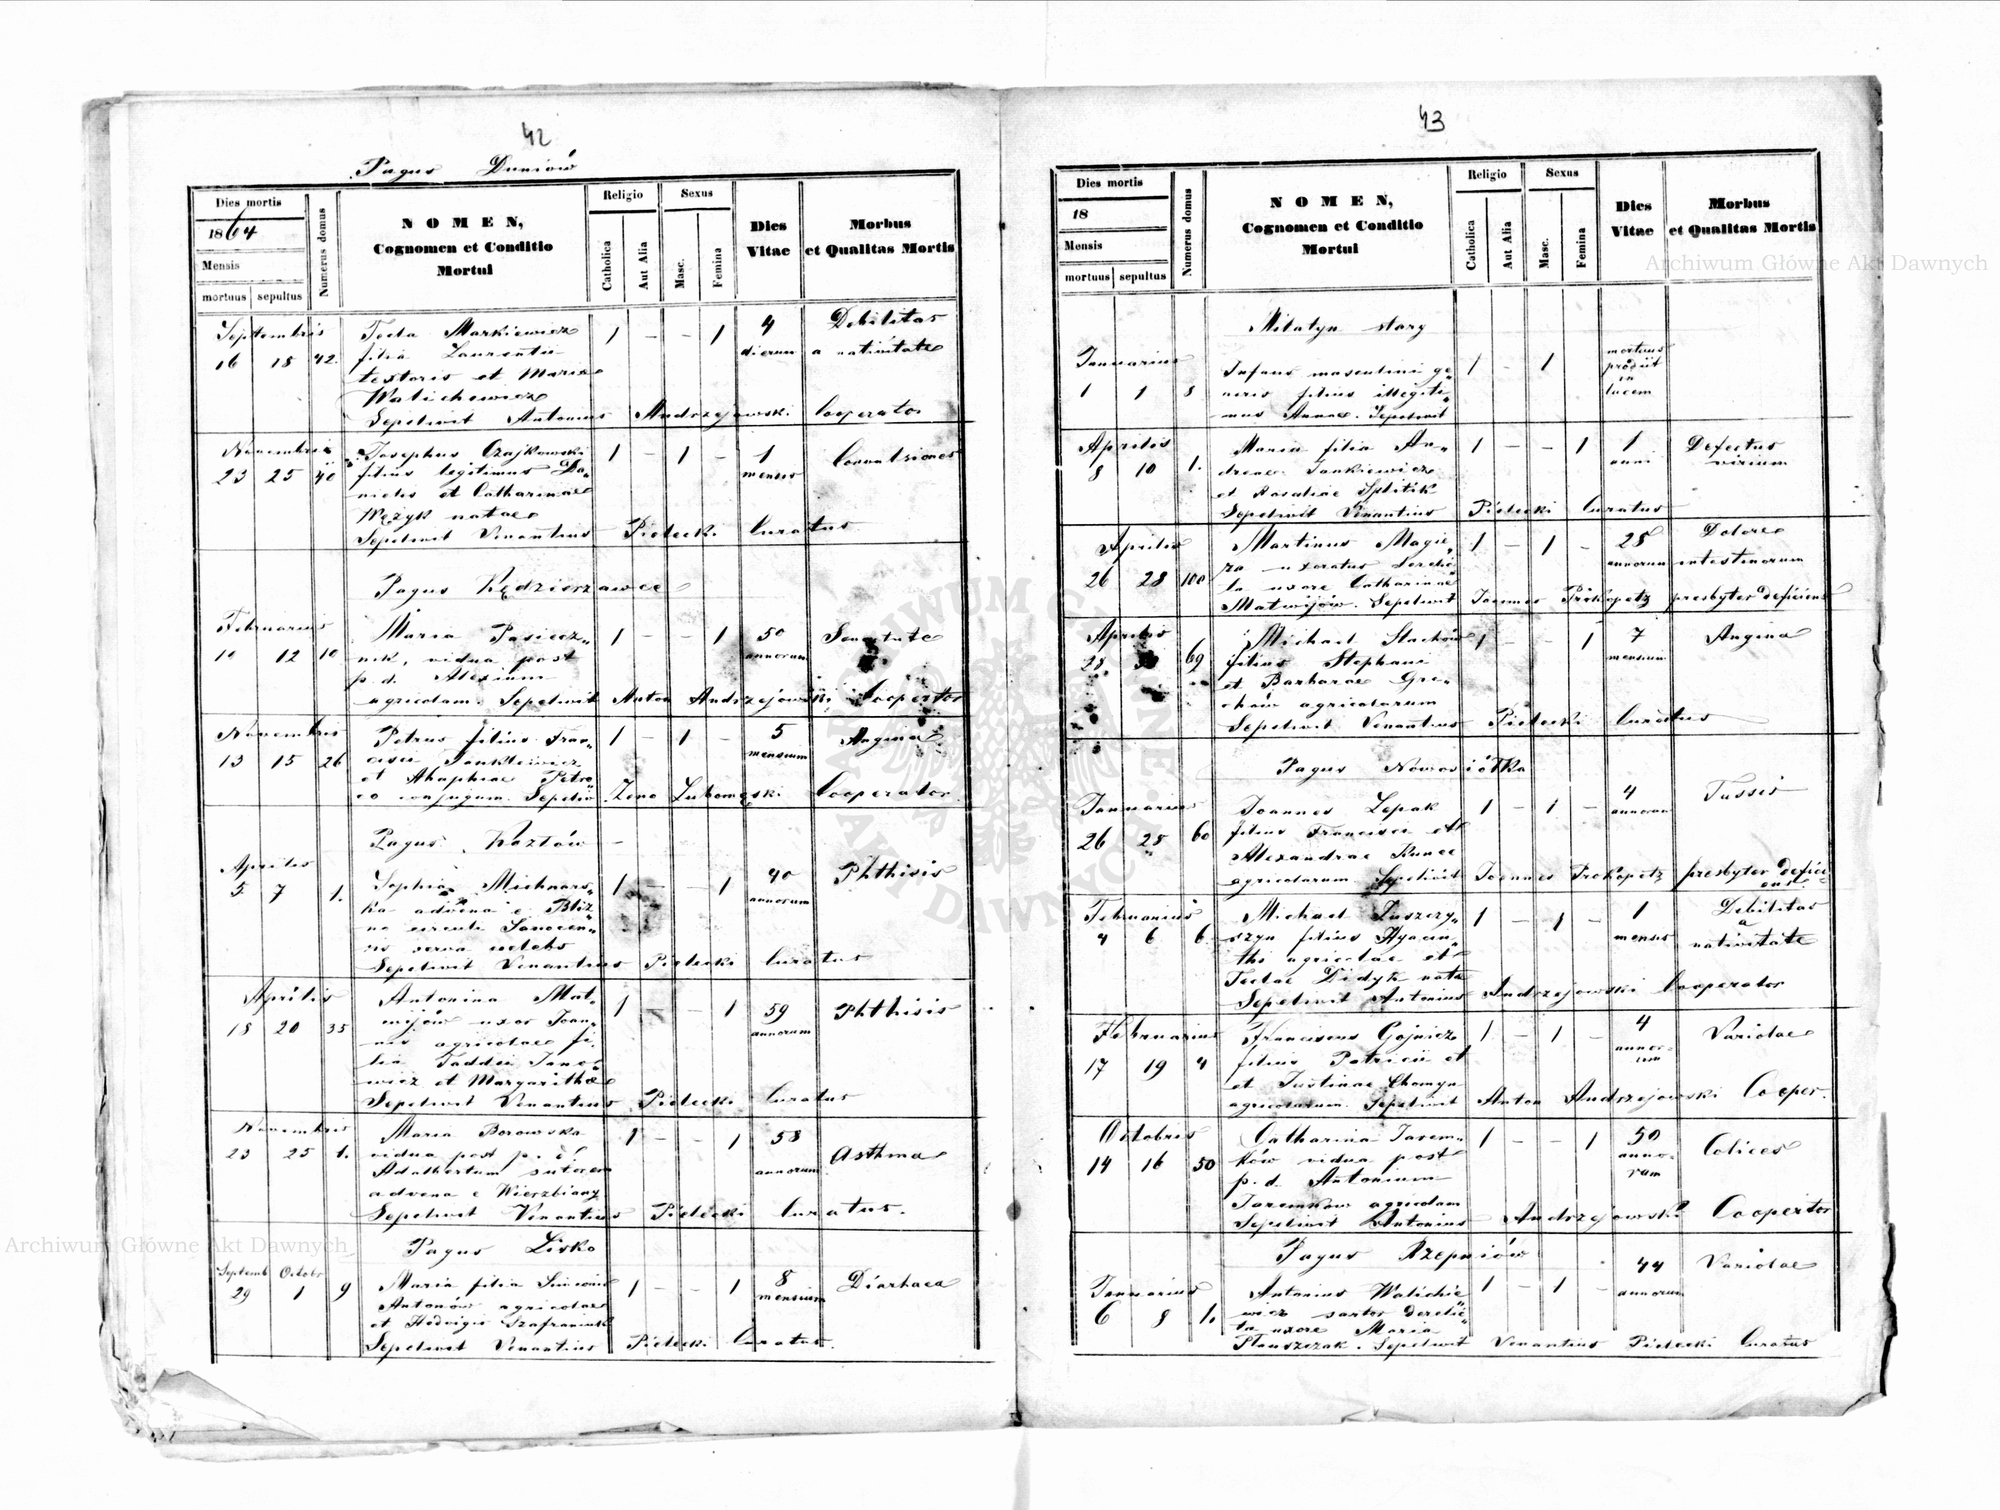 42
Pagus Duniów
Dies mortis
1864
Mensis
mortuus sepultus
Numerus domus
NOMEN,
Cognomen et Conditio
Mortui
Religio
Catholica
Aut Alia
Sexus
Masc.
Femina
Dies
Vitae
Morbus
et Qualitas Mortis
Septembris Tecla Markiewicz 1 – – 1 4 Debilitas
16 18 42. filia Laurentii dierum a nativitate
textoris et Mariae
Walichiewicz
Sepelivit Antonius Andrzejowski Cooperator
Novembris Josephus Czajkowski 1 – 1 – 1 Convulsiones
23 25 40 filius legitimus Da„ mensis
nielis et Catharinae
Wężyk natae
Sepelivit Venantius Pielecki Curatus
Pagus Kędzierzawce
Februarius Maria Pasiecz„ 1 – – 1 50 Senectute
10 12 10 nik, vidua post annorum
p. d. Alexium
agricolam. Sepelivit Anton Andrzejowski Coopertor
Novembris Petrus filius Fran„ 1 – 1 – 5 Angina
13 15 26 cisci Jankiewicz mensium
et Ahaphiae Petro
co conjugum. Sepeliv Zeno Lubomęski Cooperator
Pagus Koztów
Aprilis Sophia Michnars„ 1 – – 1 40 Phthisis
5 7 1. ka advena e Bliz„ annorum
ne circuli Sanocen„
sis serva coelebs
Sepelivit Venantius Pielecki Curatus
Aprilis Antonina Mat„ 1 – 1 59 Phthisis
18 20 35 wijów uxor Joan„ annorum
nis agricolae fi„
lia Taddei Jano„
wicz et Margarithae
Sepelivit Venantius Pielecki Curatus
Novembris Maria Borowska 1 – – 1 58 Asthma
23 25 1. vidua post p. d. annorum
Adalbertum sutorem
advena e Wierzbiany
Sepelivit Venantius Pielecki Curatus.
Pagus Lisko
Septemb Octobr Maria filia Simeonis 1 – – 1 8 Diarhaea
29 1 9 Antonów agricolae mensium
et Hedvigis Szafranink
Sepelivit Venantius Pielecki Curatus.
43
Dies mortis
18
Mensis
mortuus sepultus
Numerus domus
NOMEN,
Cognomen et Conditio
Mortui
Religio
Catholica
Aut Alia
Sexus
Masc.
Femina
Dies
Vitae
Morbus
et Qualitas Mortis
Milatyn stary
Januarius Infans masculini ge„ 1 – 1 mortuus
1 1 8 neris filius illegiti„ prodiit in
mus Annae. Sepelivit lucem
Aprilis Maria filia An„ 1 – – 1 1 Defectus
8 10 1. dreae Jankiewicz anni virium
et Rosaliae Splitik
Sepelivit Venantius Pielecki Curatus
Aprilis Martinus Magie„ 1 – 1 – 28 Dolore
26 28 100 ra uxoratus derelic„ annorum intestinorum
ta uxore Catharinae
Matwijów. Sepelivit Joannes Prokopetz presbyter deficiens
Aprilis Michael Stachów 1 – – 1 7 Angina
28 69 filius Stephani mensium
et Barbarae Gre„
chów agricolarum
Sepelivit Venantius Pielecki Curatus
Pagus Nowosiółka
Januarius Joannes Lepak 1 – 1 – 4 Tussis
26 28 60 filius Francisci et annorum
Alexandrae Kunec
agricolarum Sepelivit Joannes Prokopetz presbyter defici„
ens
Februarius Michael Juszczy„ 1 – 1 – 1 Debilitas
4 6 6. szyn filius Hyacin„ mensis a
thi agricolae et nativitate
Teclae Didyk nata
Sepelivit Antonius Andrzejowski Cooperator
Februarius Franciscus Gojnicz 1 – 1 – 4 Variolae
17 19 4 filius Patricii et annor-
et Justinae Chomyn um
agricolarum. Sepelivit Anton Andrzejowski Cooper.
Octobris Catharina Jarem„ 1 – – 1 50 Colices
14 16 50 ków vidua post anno-
p. d. Antonium rum
Jaremków agricolam
Sepelivit Antonius Andrzejowski Coopertor
Pagus Rzepniów
Januarius Antonius Walichie 1 – 1 – 44 Variolae
6 8 1. wicz sartor derelic„ annorum
ta uxore Maria
Ptauszczak. Sepelivit Venantius Pielecki Curatus
Archiwum Główne Akt Dawnych
Archiwum Główne Akt Dawnych
ARCHIWUM GŁÓWNE AKT DAWNYCH